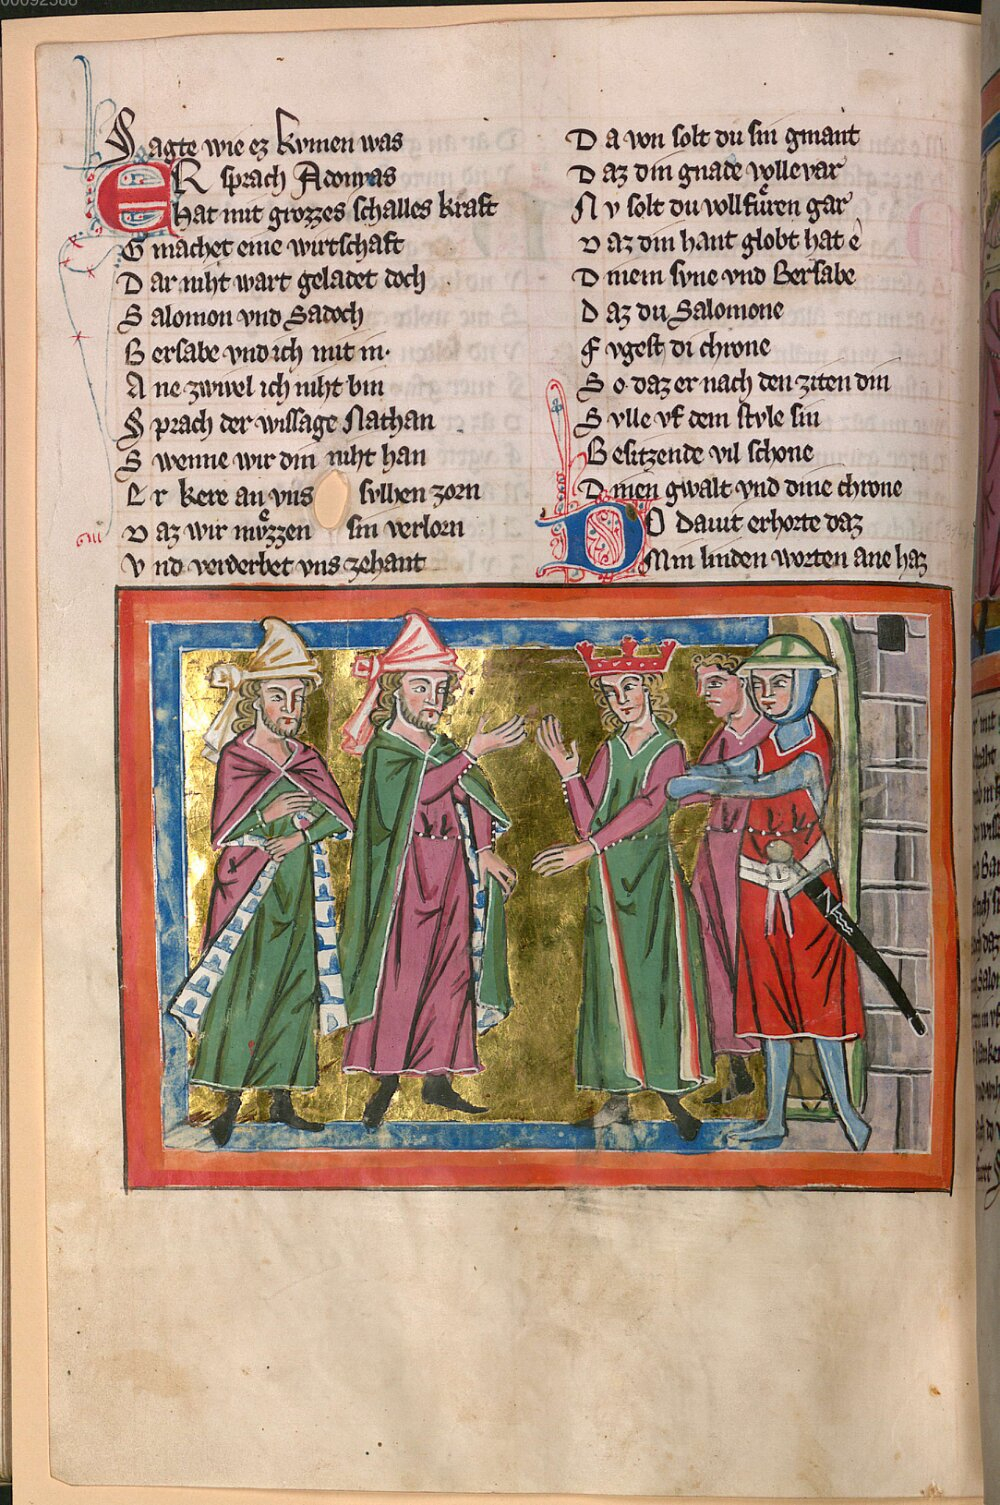 00092588
Sagte wie ez kvmen was
ER sprach Adonyas
Hat mit grozzes schalles kraft
Gmachet eine wirtschaft
Dar niht wart geladet doch
Salomon vnd Sadoch
Bersabe vnd ich mit in.
Ane zwiuel ich niht bin
Sprach der wissage Nathan
Swenne wir din niht han
Er kere an vns sulhen zorn
Daz wir mvͤzzen sin verlorn
Vnd verderbet vns zehant
Da von solt du sin gmant
Daz din gnade volleuar
Nv solt du vollfuͤren gar
Daz din hant globt hat e
Dmein syne vnd Bersabe
Daz du Salomone
Fvgest di chrone
So daz er nach den ziten din
Sulle vf dem stvle sin
Besitzende vil schone
Dinen gwalt vnd dine chrone
DO Dauit erhorte daz
Min linden worten ane haz